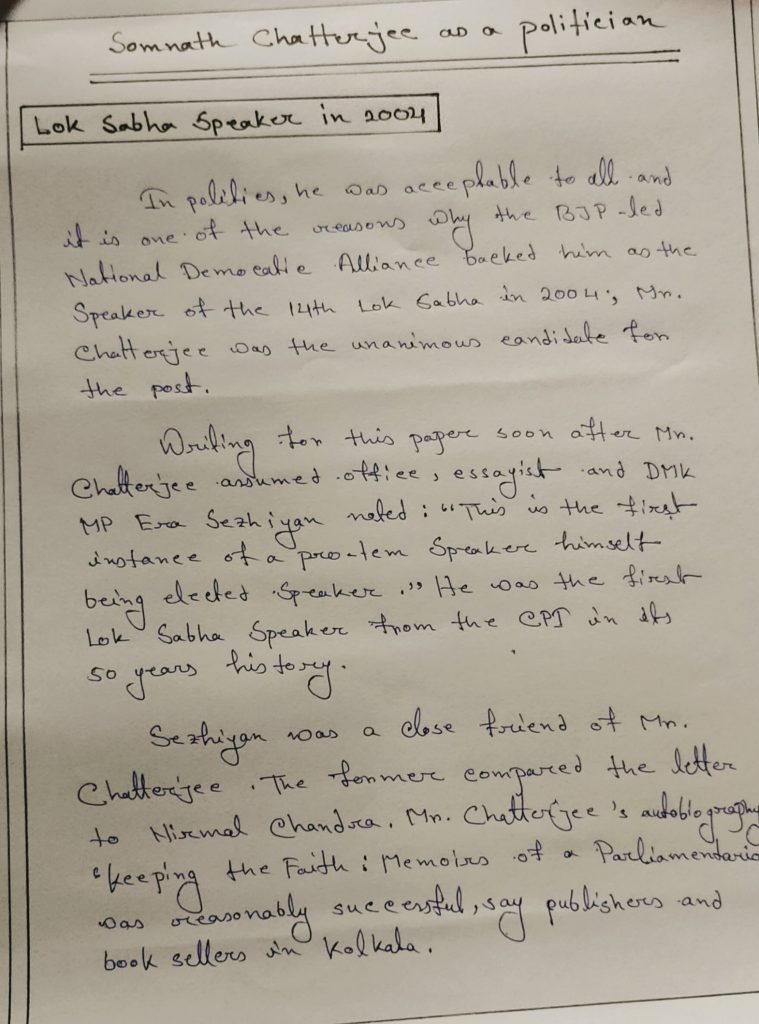 Somnath Chatterjee as a politician
Lok Sabha Speaker in 2004
In politics, he was acceptable to all and
it is one of the reasons why the BJP-led
National Democatic Alliance backed him as the
Speaker of the 14th Lok Sabha in 2004; Mr.
Chatterjee was the unanimous candidate for
the post.
Writing for this paper soon after Mr.
Chatterjee assumed office, essayist and DMK
MP Era Sezhiyan noted: "This is the first
instance of a pro-tem Speaker himself
being elected Speaker." He was the first
Lok Sabha Speaker from the CPI in its
50 years history.
Sezhiyan was a close friend of Mr.
Chatterjee. The former compared the letter
to Nirmal Chandra. Mr. Chatterjee's autobiography
'keeping the Faith: Memoirs of a Parliamentaria
was reasonably successful, say publishers and
book sellers in Kolkala.